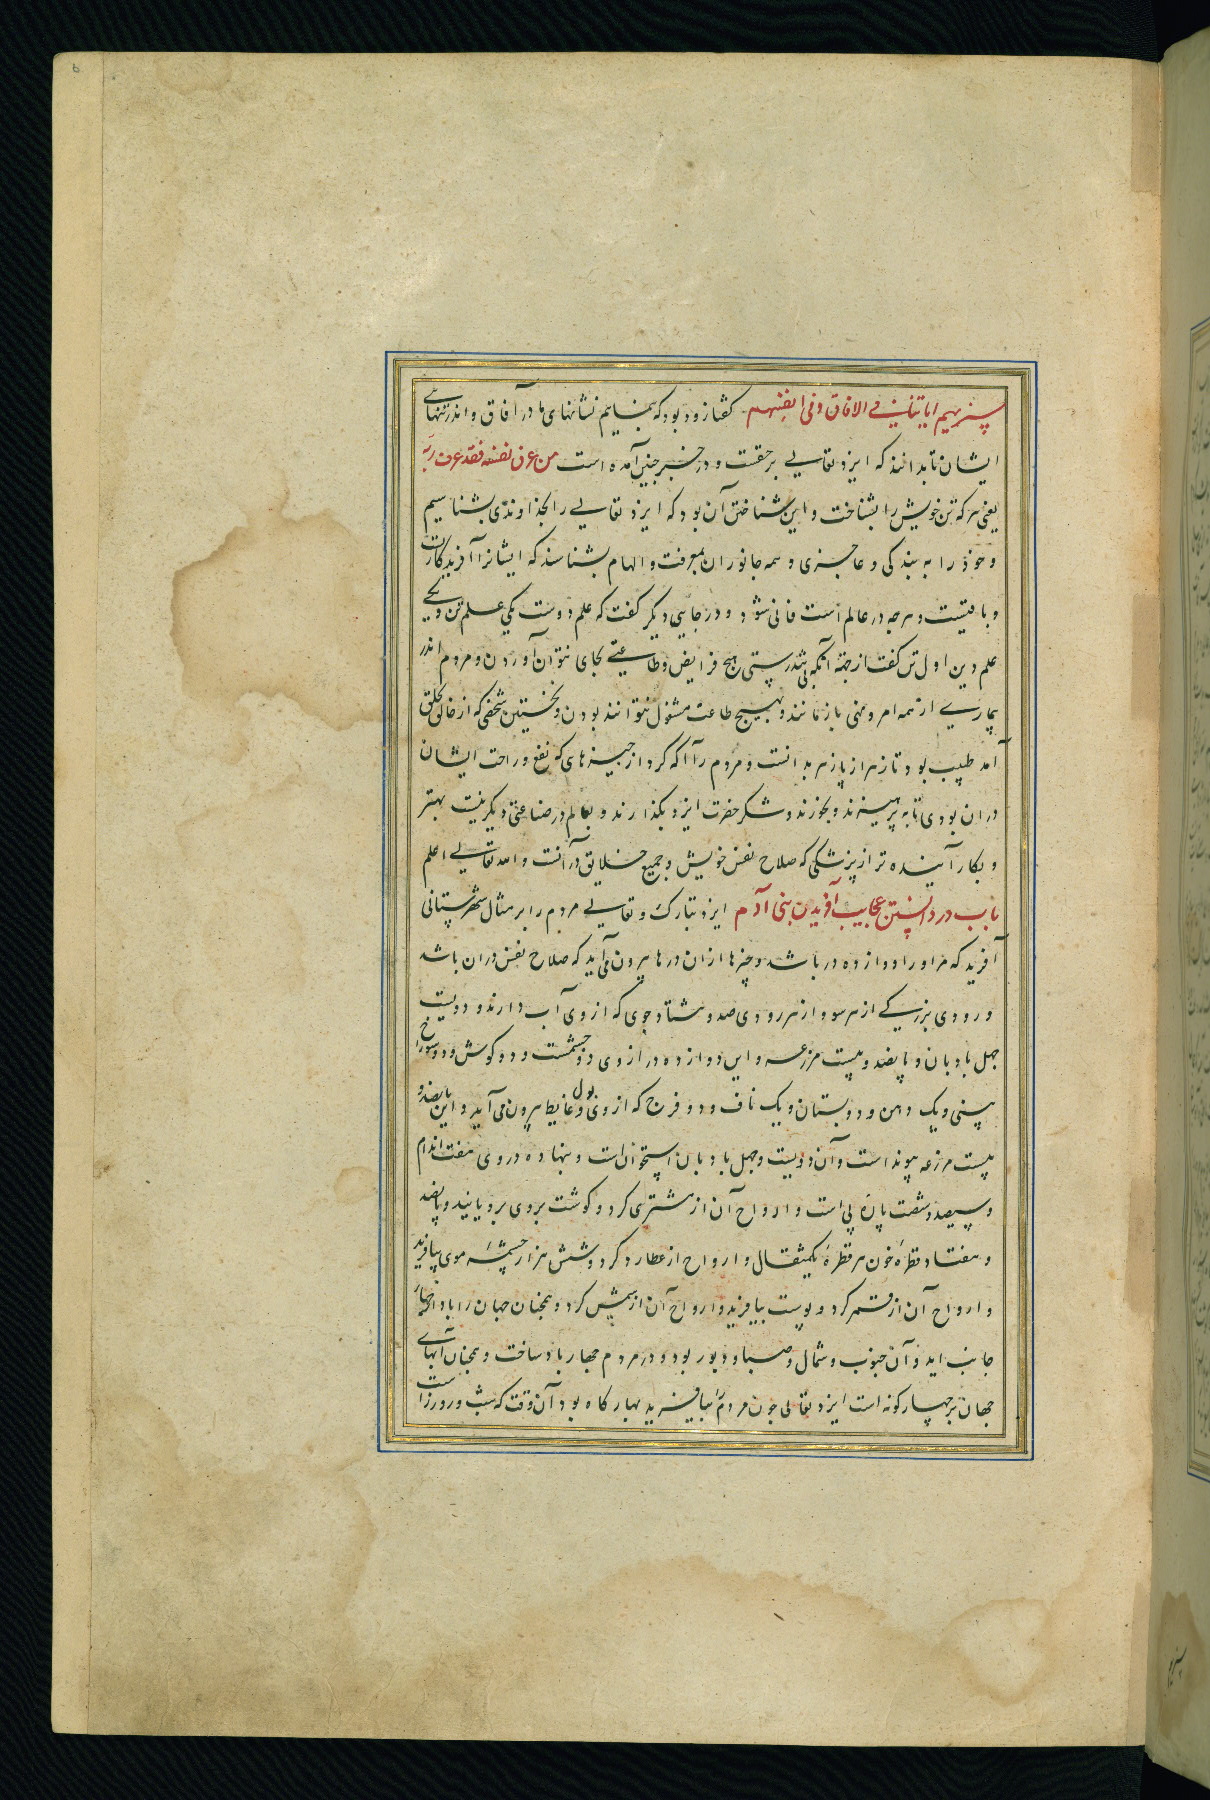 سنریهم ایاتنا فی الافاق و فی انفسهم کفتا زود بود که بنماییم نشانهای ما در آفاق و اندر تنهای
ایشان تا بدانند که ایزد تعالی بر حقست و در خبر چنین آمده است من عرف نفسه فقد عرف ربه
یعنی هر که تن خویش را بشناخت و این شناختن آن بود که ایزد تعالی را بخذاوندی بشناسیم
و خوذ را به بندکی و عاجزی و همه جانوران بمعرفت و الهام بشناسند که ایشانرا آفریدکاریست
و باقیست و هرچه در عالم است فانی شود و در جایی دیکر کفت که علم دوست یکی علم تن و یکی
علم دین اول تن کفت از جهة آنکه بی تندرستی هیچ فرایض و طاعتی بجای نتوان آوردن و مردم اندر
بیماری از همه امر و نهی باز مانند و بهیچ طاعت مشغول نتوانند بودن و نخستین شخصی که از خالق بخلق
آمد طبیب بود تا زهر از پازهر بدانست و مردم را آکه کرد از چیزهای که نفع و راحت ایشان
دران بودی تا بپرهیزند و بخورند و شکر حضرت ایزد بکذارند و بعالم در صناعتی دیکر نیست بهتر
و بکار آینده تر از پزشکی که صلاح نفس خویش و جمیع خلایق در آنست والله تعالی اعلم
باب در دانستن عجایب آفریدن بنی آدم ایزد تبارک و تعالی مردم را بر مثال شهرستانی
آفرید که مر او را دوازده در باشد و چیزها ازان درها بیرون می آید که صلاح نفس دران باشد
و رودی بزرکی از هر سو و از هر رودی صد و هشتاد جوی که ازوی آب دارند و دویست
چهل بادبان و پانصد و بیست مزرعه و این دوازده در ازوی دو چشمست و دو کوش و دو سوراخ
بینی و یک دهن و دو بستان و یک ناف و دو فرج که ازوی بول و غایط بیرون می آید و این پانصد و
بیست مزرعه پیوند است و آن دویست و چهل بادبان استخوان است و بنهاده در وی هفت اندام
و سیصد و شصت پاره پی است و ارواح آن از مشتری کرد و کوشت بروی برویانید و پانصد
و هفتاد قطره خون هر قطره یکمثقال و ارواح از عطارد کرد و شش هزار چشمه موی بیافرید
و ارواح آن از قمر کرد و پوست بیافرید و ارواح آن از شمس کرد و همچنان جهان را باد از چهار
جانب اید و آن جنوب و شمال و صبا و دبور بود و در مردم چهار باد ساخت و همچنان آبهای
جهان بر چهار کونه است ایزد تعالی چون مردم را بیافرید بهار کاه بود آن وقت که شب و روز راست